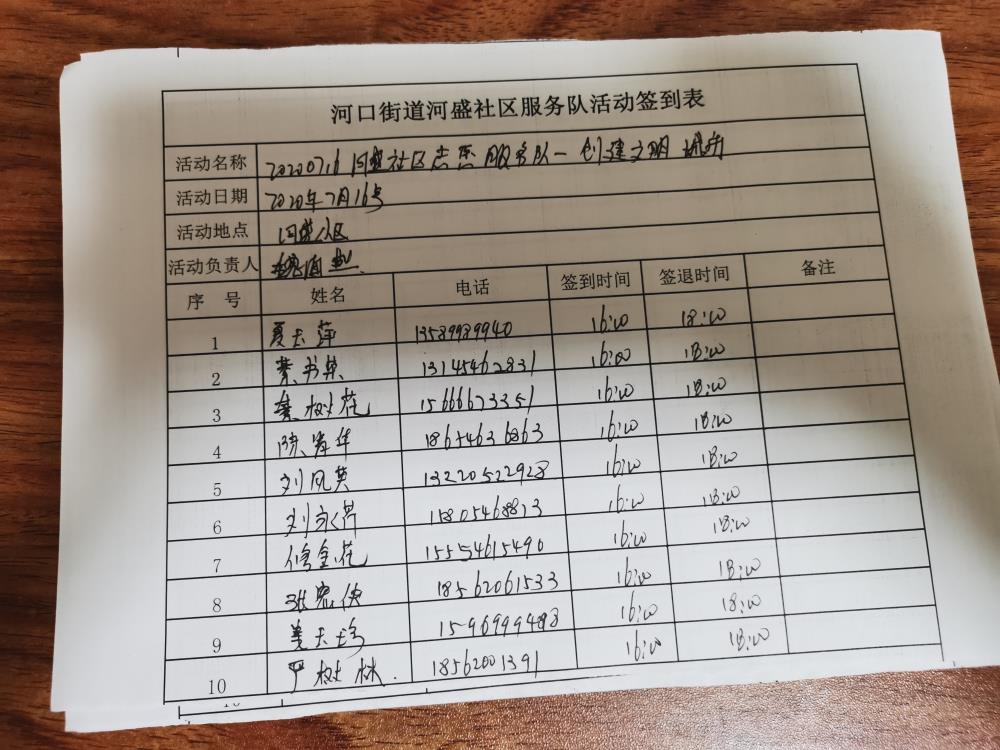 河口街道河盛社区服务队活动签到表
活动名称 20200716 河盛社区志愿服务队一创建文明城市
活动日期 2020年7月16号
活动地点 河盛社区
活动负责人
序号 姓名 电话 签到时间 签退时间 备注
1 夏玉萍 13589989940 16:00 18:00
2 綦书英 13145462831 16:00 18:00
3 綦树花 15666673351 16:00 18:00
4 陈海华 18654636863 16:00 18:00
5 刘凤英 13220522928 16:00 18:00
6 刘永芹 15805468813 16:00 18:00
7 修金花 15554615490 16:00 18:00
8 张 18562061533 16:00 18:00
9 姜玉珍 15969994488 16:00 18:00
10 严树林. 18562001391 16:00 18:00